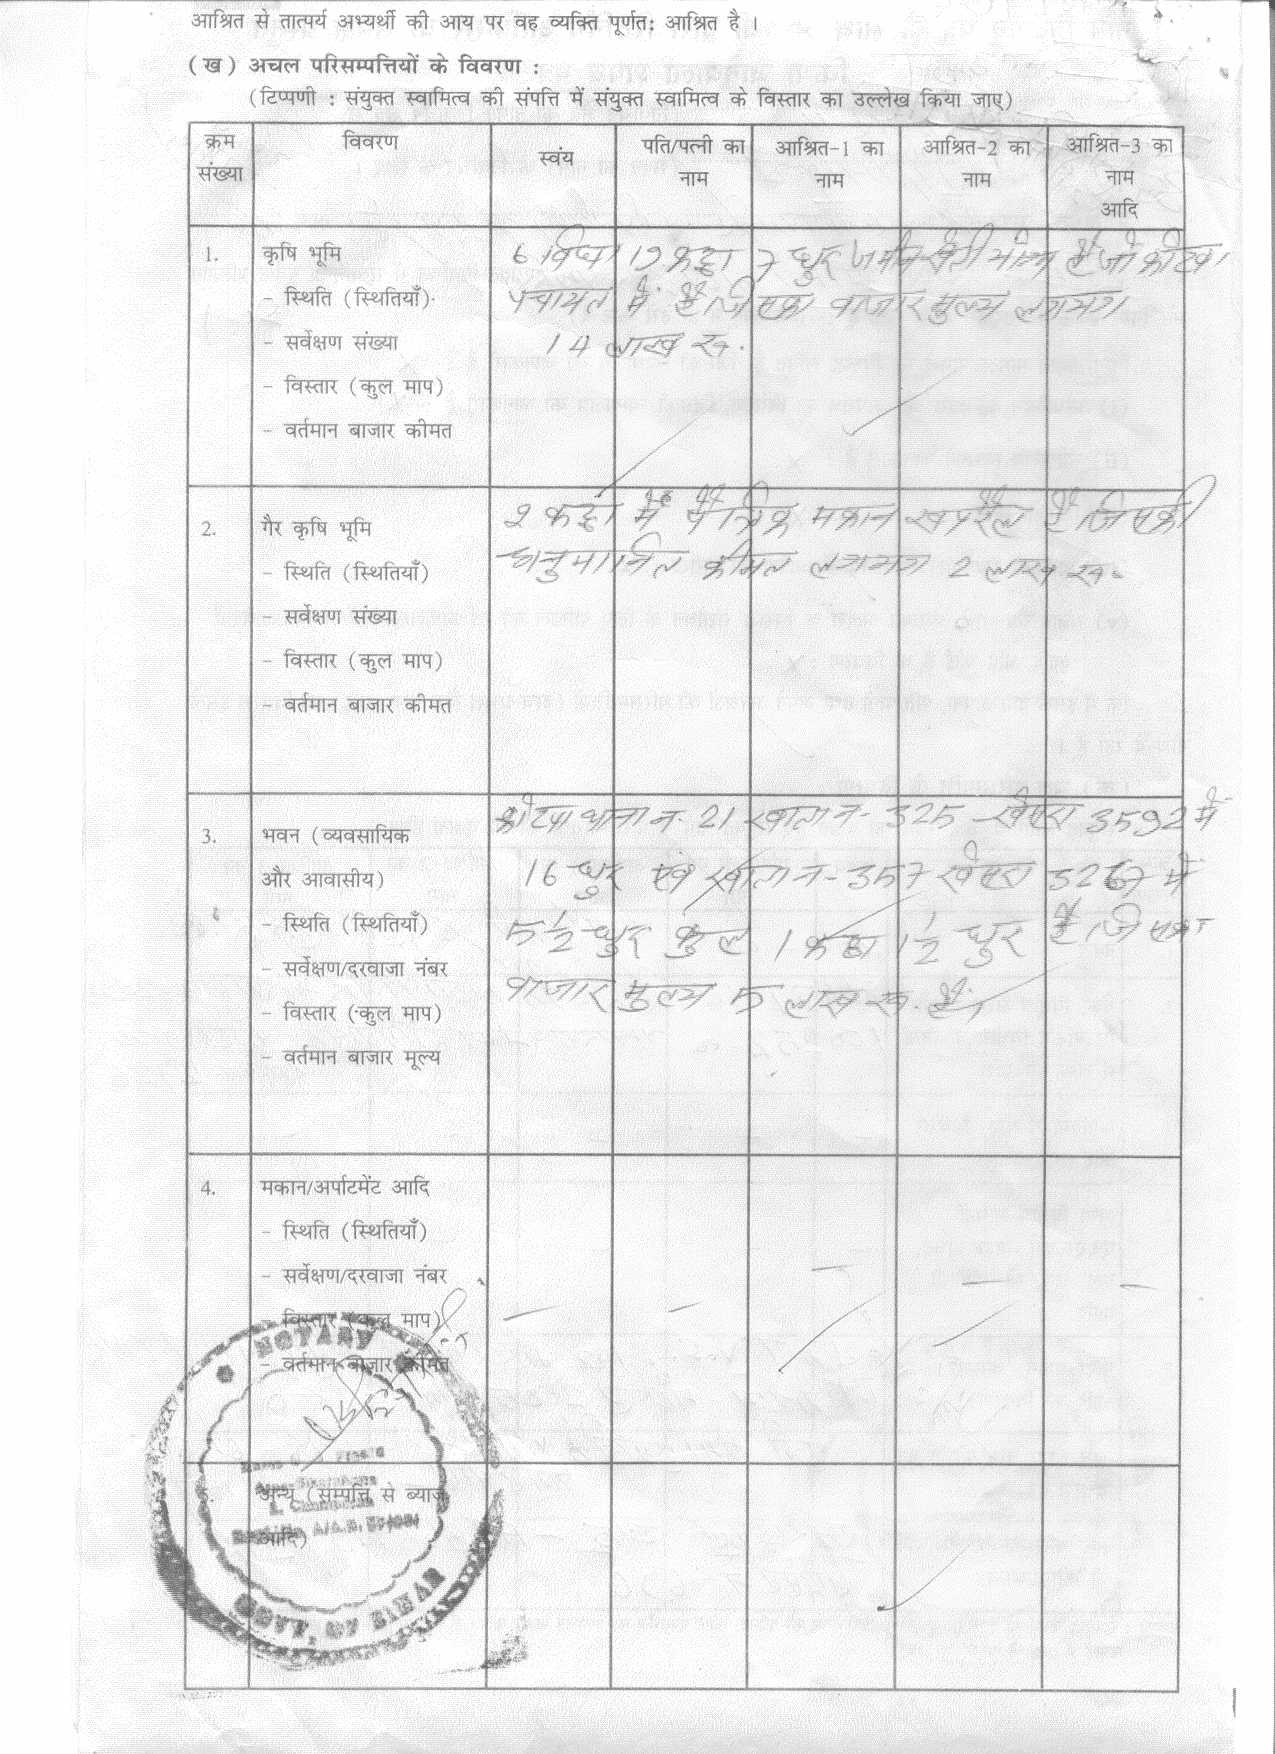 आश्रित से तात्पर्य अभ्यर्थी की आय पर वह व्यक्ति पूर्णत: आश्रित है ।
(ख) अचल परिसम्पत्तियों के विवरण :
(टिप्पणी : संयुक्त स्वामित्व की संपत्ति में संयुक्त स्वामित्व के विस्तार का उल्लेख किया जाए)
क्रम संख्या विवरण स्वंय पति/पत्नी का नाम आश्रित-1 का नाम आश्रित-2 का नाम आश्रित-3 का नाम आदि
1. कृषि भूमि 6 विघा 17 कट्ठा 7 धुर जमीन खेती योग्य है जो कोटवा
- स्थिति (स्थितियाँ) पंचायत में है जिसका बाजार मुल्य लगभग
- सर्वेक्षण संख्या 14 लाख रू.
- विस्तार (कुल माप)
- वर्तमान बाजार कीमत
2. गैर कृषि भूमि 2 कट्ठा में पैत्रिक मकान खपरैल है जिसकी
- स्थिति (स्थितियाँ) अनुमानित कीमत लगभग 2 लाख रू.
- सर्वेक्षण संख्या
- विस्तार (कुल माप)
- वर्तमान बाजार कीमत
कोटवा थाना न. 21 खाता न- 325 खेसरा 3592 में
3. भवन (व्यवसायिक
और आवासीय) 16 धुर एवं खाता न- 357 खेसरा में
- स्थिति (स्थितियाँ) 5 1/2 धुर कुल 1 कट्ठा 1 1/2 धुर है जिसका
- सर्वेक्षण/दरवाजा नंबर
बाजार मुल्य 5 लाख रू. है।
- विस्तार (कुल माप)
- वर्तमान बाजार मूल्य
4. मकान/अर्पाटमेंट आदि
- स्थिति (स्थितियाँ)
- सर्वेक्षण/दरवाजा नंबर
- विस्तार (कुल माप)
- वर्तमान बाजार कीमत
5. अन्य (सम्पत्ति से ब्याज
आदि)
NOTARY
GOVT. OF BIHAR